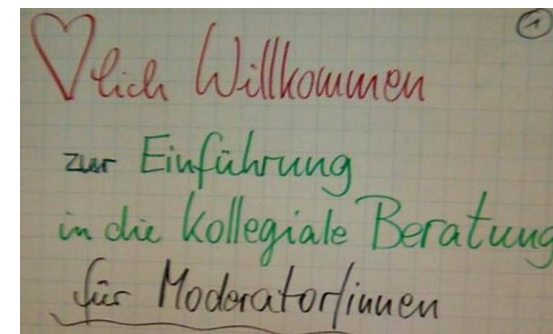 1
♡lich Willkommen
zur Einführung
in die kollegiale Beratung
für Moderator/innen